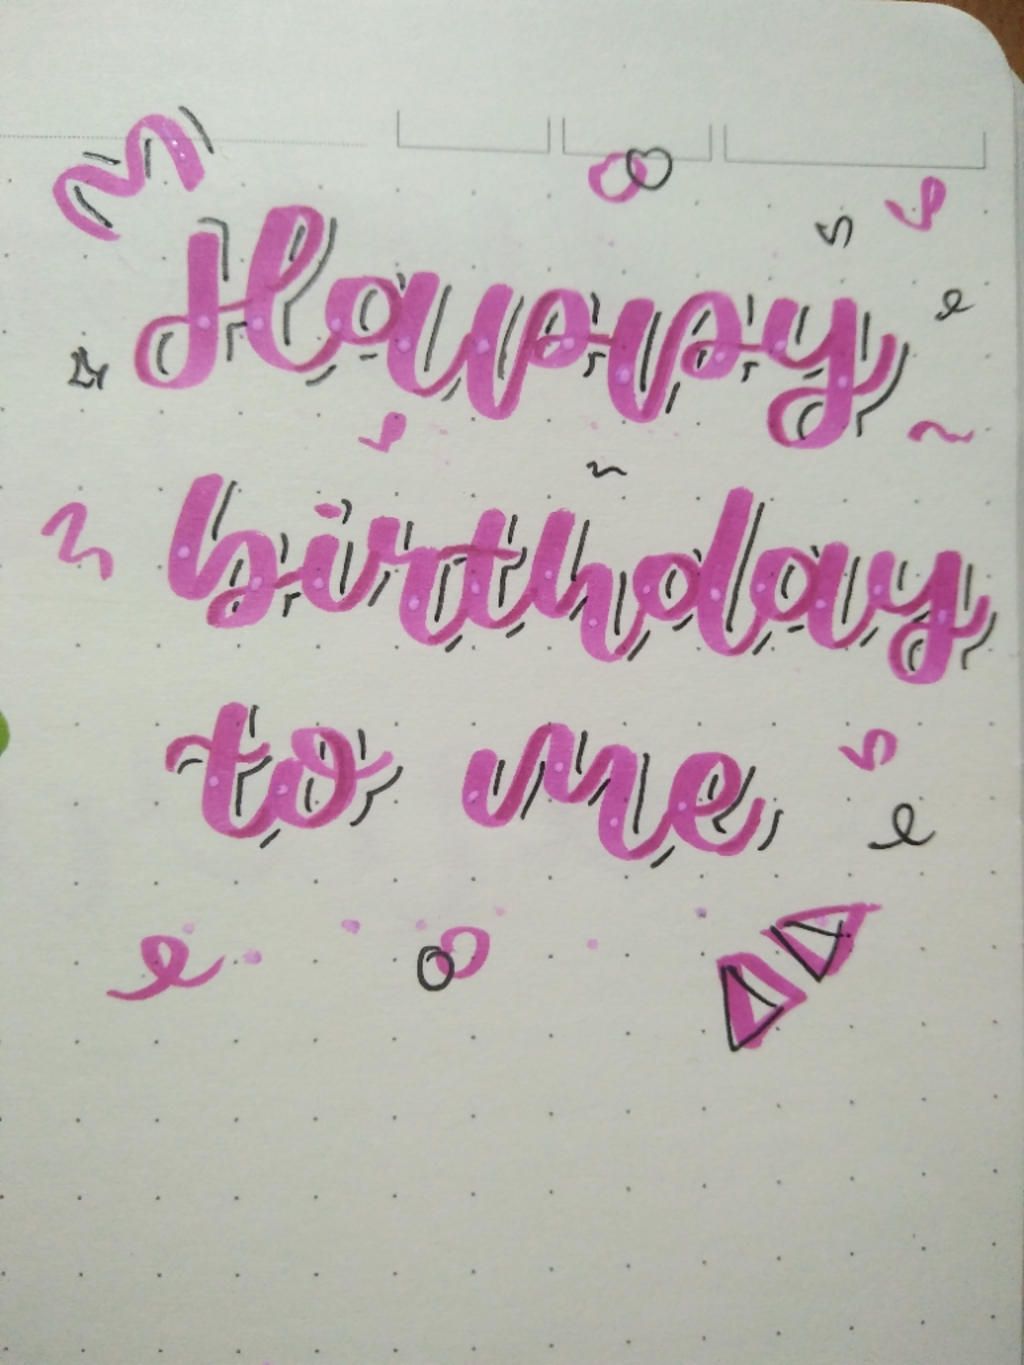 Happy
birthday
to me